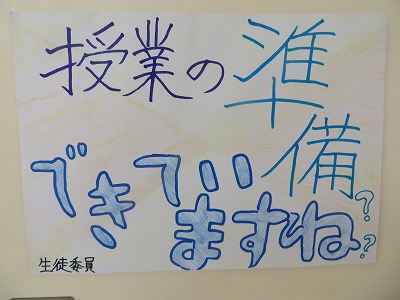 授業の準備
できてい
ますね??
生徒委員